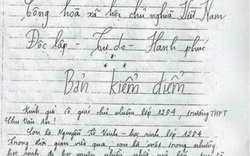 Cộng hòa xã hội chủ nghĩa Việt Nam
Độc lập - Tự do - Hạnh phúc
Bản kiểm điểm
Kính gửi cô giáo chủ nhiệm lớp 12D4, trường THPT
Chu Văn An!
Con là Nguyễn Tú Minh - học sinh lớp 12D4.
Trong thời gian vừa qua, con là một trong những
học sinh đi học muộn nhiều nhất